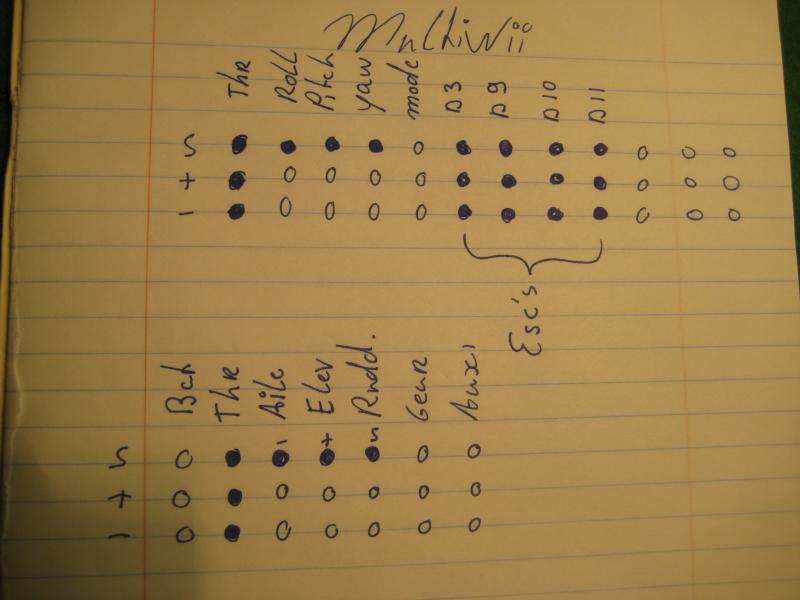 MultiWii
Thr Roll Pitch Yaw mode D3 D9 D10 D11
s
+
-
Esc's
Bat Thr Aile Elev Rudd. Gear Aux1
- + s
s
+
-